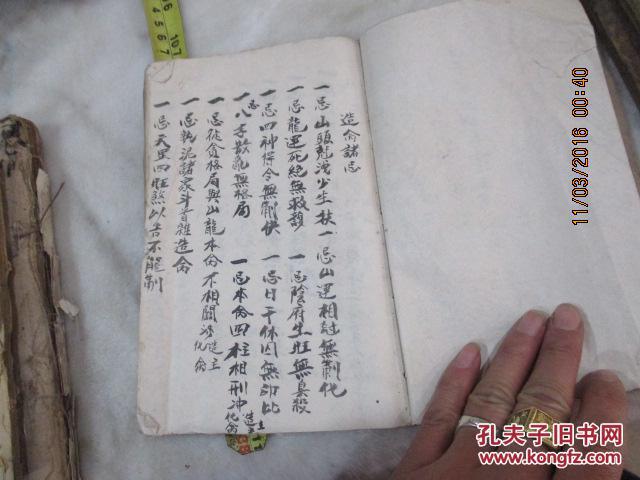 造命諸忌
一忌山頭尅洩少生扶 一忌山運相尅無制化
一忌龍運死絕無救助 一忌陰府生旺無臬殺
一忌四神得令無制伏 一忌日干休囚無印比
一忌八字散亂無格局 一忌本命四柱相刑冲 造主化命
一忌徒貪格局與山龍本命不相關涉 造主化命
一忌執泥諸家斗首雜造命
一忌天星四旺煞以吉不能制
11/03/2016 00:40
孔夫子旧书网
www.kongfz.com